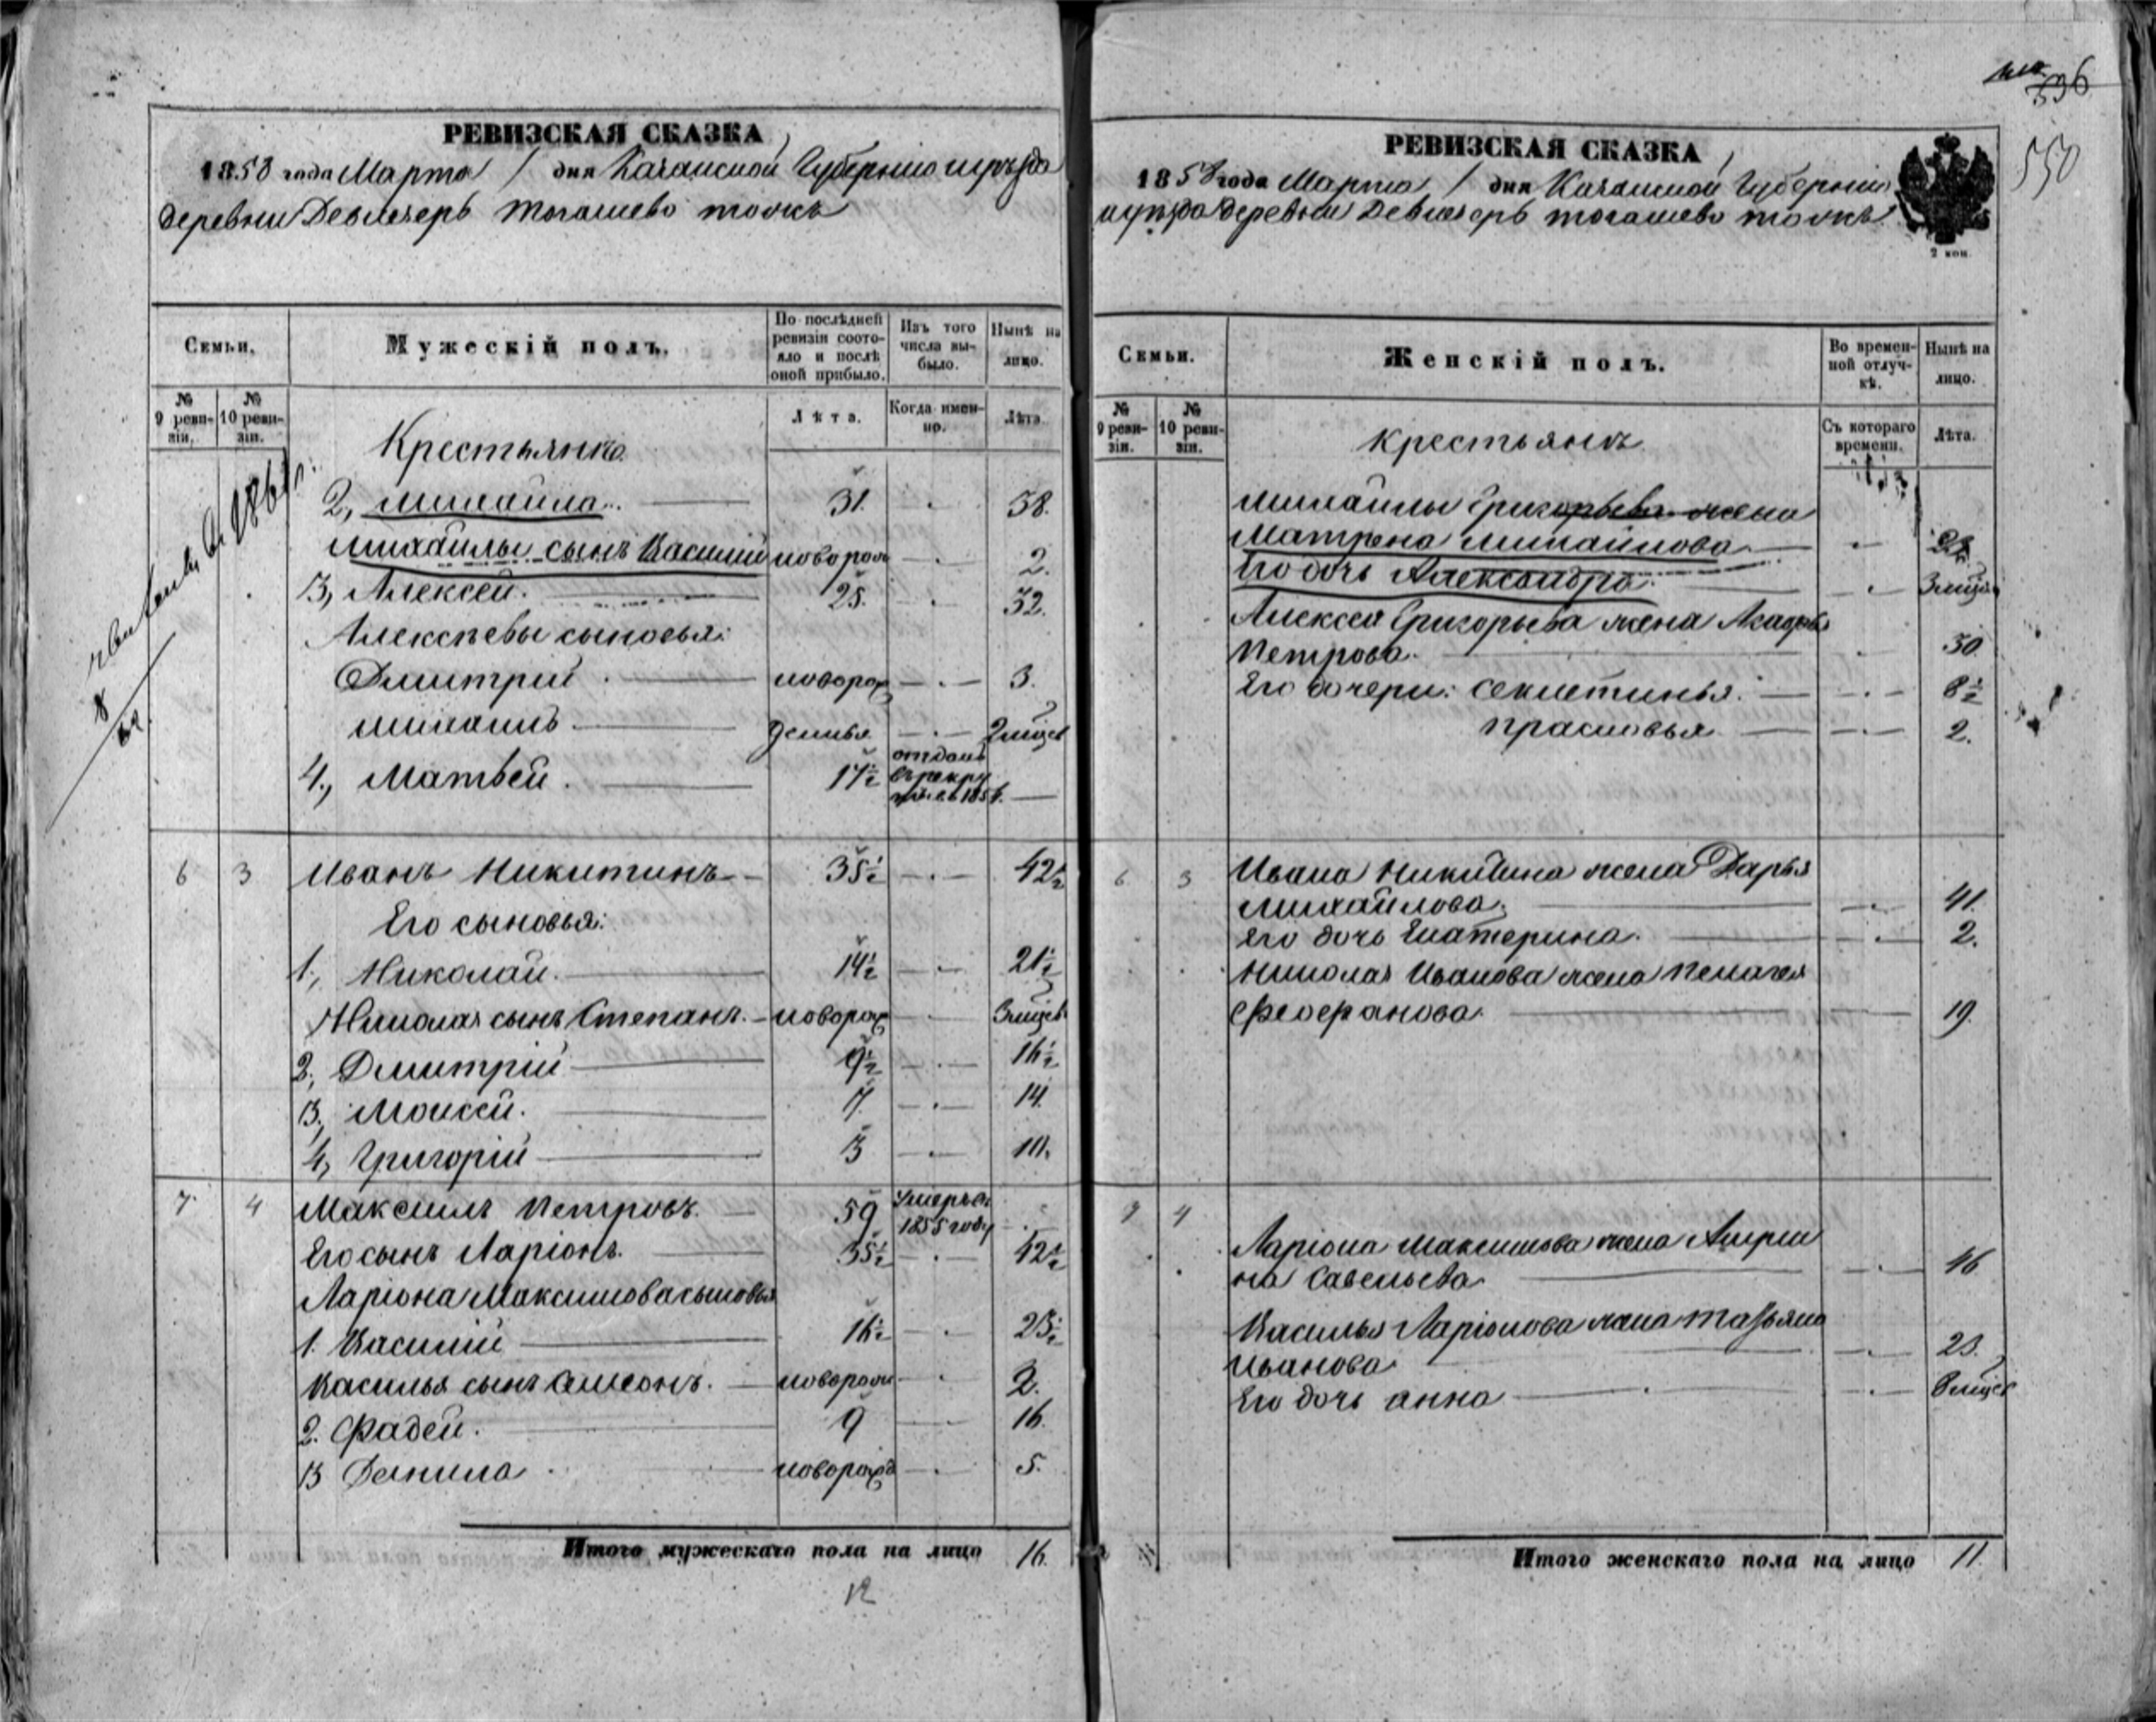 РЕВИЗСКАЯ СКАЗКА
1858 года Марта 1 дня Казанской Губерніи и уѣзда
деревни Девличерь тогашево тожъ
Семьи.
Мужескій полъ.
По послѣдней ревизіи состояло и послѣ оной прибыло.
Изъ того числа выбыло.
Нынѣ на лицо.
№ 9 ревизіи.
№ 10 ревизіи.
Лѣта.
Когда именно.
Лѣта.
Крестьянъ
2, Михайла 31. 38.
Михайлы сынъ Василій новорож 2.
3, Алексей. 25. 32.
Алексѣевы сыновья:
Дмитрій новорож 3.
Михаилъ 2 мѣсяц
4, Матвей 17½ отданъ въ рекруты въ 185
6 3 Иванъ Никитинъ 35½ 42½
Его сыновья:
1, Николай. 14½ 21½
Николая сынъ Степанъ. новорож 3 мѣсяц
2, Дмитрій 9½ 16½
3, Моисей. 7. 14.
4, Григорій 3 10.
7 4 Максимъ Петровъ 59 Умеръ въ 1855 году
Его сынъ Ларіонъ 35½ 42½
Ларіона Максимова сыновья
1. Василій 16½ 23½
Василья сынъ новорож 2.
2. Фадей. 9 16.
3 Данила новорожд 5.
Итого мужескаго пола на лицо 16.
12
550
РЕВИЗСКАЯ СКАЗКА
1858 года Марта 1 дня Казанской Губерніи
и уѣзда деревни Девличерь тогашево тожъ
2 коп.
Семьи.
Женскій полъ.
Во временной отлучкѣ.
Нынѣ на лицо.
№ 9 ревизіи.
№ 10 ревизіи.
Съ котораго времени.
Лѣта.
Крестьянъ
Михайлы Григорьева жена
Матрена Михайлова
Его дочь Александра 3 мѣсяц
Алексея Григорьева жена
Петрова. 30
Его дочери: Секлетинья. 8½
Прасковья 2.
6 3 Ивана Никитина жена Дарья
Михайлова. 41.
Его дочь Екатерина. 2.
Николая Иванова жена Пелагея
Феофанова. 19.
7 4 Ларіона Максимова жена Акули
на Савельева 46
Василья Ларіонова жена Татьяна
Иванова 23.
Его дочь Анна мѣсяц
Итого женскаго пола на лицо 11.